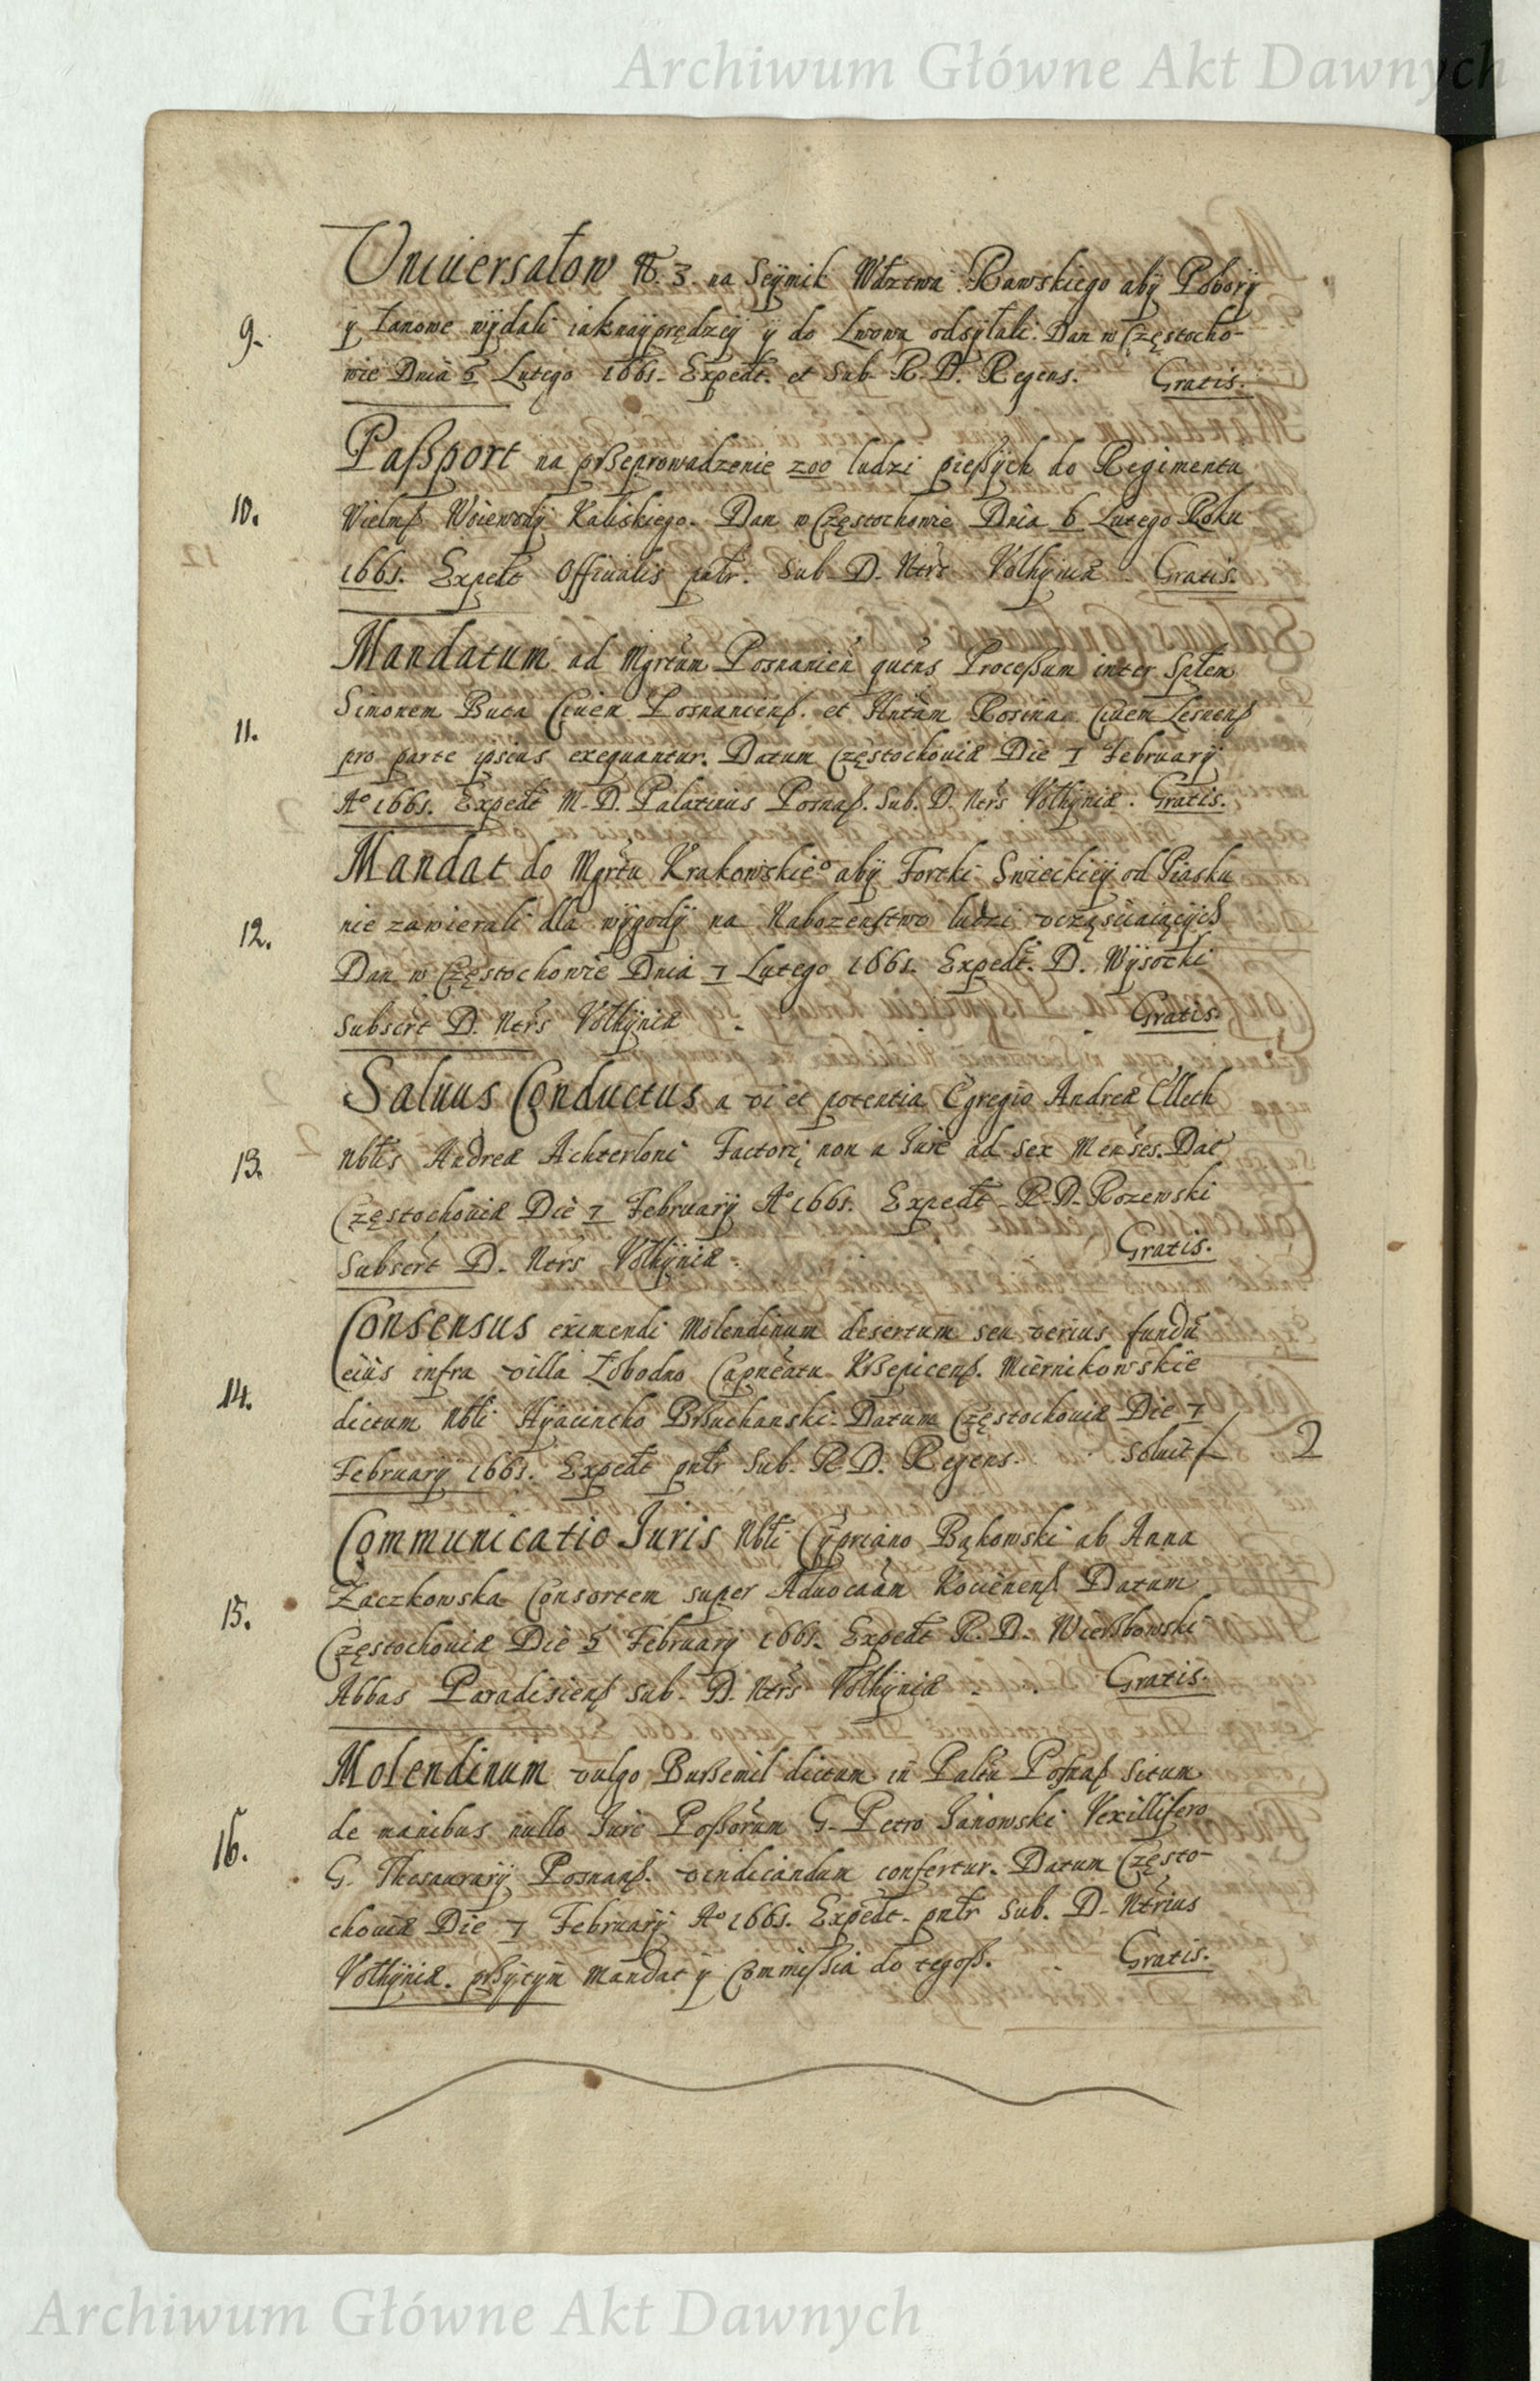 Archiwum Główne Akt Dawnych
Uniuersałow N. 3. na Seÿmik Wdztwa Rawskiego abÿ Poborÿ
9. ÿ Łanowe wÿdali iaknaÿprędzeÿ ÿ do Lwowa odsÿłali. Dan w Częstocho-
wie Dnia 5 Lutego 1661. Expedt. et Sub. R. D. Regens. Gratis.
Paßport na prßeprowadzenie 200 ludzi pießÿch do Regimentu
10. Wielmß Woiewodÿ Kaliskiego. Dan w Częstochowie Dnia 6 Lutego Roku
1661. Expedt Officialis pntr. Sub. D. Ntrs Volhÿniæ Gratis.
Mandatum ad Mgrtum Posnanien qutns Proceßum inter Spłem
Simonem Buca Ciuem Posnanienß. et Antam Rosina Ciuem Lesnenß
11. pro parte ipsius exequantur. Datum Częstochouiæ Die 7 Februarÿ
Aº 1661. Expedt M. D. Palatinus Posnaß. Sub. D. Ntrs Volhÿniæ. Gratis.
Mandat do Mgrtu Krakowskieº abÿ Fortki Swieckieÿ od Piasku
12. nie zawierali dla wÿgodÿ na Nabozenstwo ludzi vczęsciaiącÿch
Dan w Częstochowie Dnia 7 Lutego 1661. Expedt. D. Wÿsocki
Subscrt D. Ntrs Volhÿniæ Gratis.
Saluus Conductus a vi et potentia Egregio Andreæ Elleth
13. Nbtis Andreæ Achterloni Factori, non a Iure ad sex Menses. Dat
Częstochouiæ Die 7 Februarÿ Aº 1661. Expedt R. D. Rozewski
Subscrt D. Ntrs Volhÿniæ. Gratis.
Consensus eximendi Molendinum desertum seu verius fundū
eius infra villā Łobodno Capneatu Krßepicenß. Miernikowskie
14. dictum Nbli Hÿacincho Brßuchanski. Datum Częstochouiæ Die 7
Februarÿ 1661. Expedt pntr Sub. R. D. Regens. Soluit f 2
Communicatio Iuris Nbli Cÿpriano Bąkowski ab Anna
Zaczkowska Consortem super Aduocaam Kocienenß Datum
15. Częstochouiæ Die 5 Februarÿ 1661. Expedt R. D. Wierßbowski
Abbas Paradisienß Sub. D. Ntrs Volhÿniæ Gratis.
Molendinum vulgo Bußemil dictum in Paltu Posnaß Situm
de manibus nullo Iure Poßorum G. Petro Ianowski Vexillifero
16. G. Thesaurarÿ Posnanß. vindicandum confertur. Datum Często-
chouiæ Die 7 Februarÿ Aº 1661. Expedt. pntr Sub. D. Ntrius
Volhÿniæ. prßÿtÿm Mandat ÿ Commißia do tegoß. Gratis.
Archiwum Główne Akt Dawnych